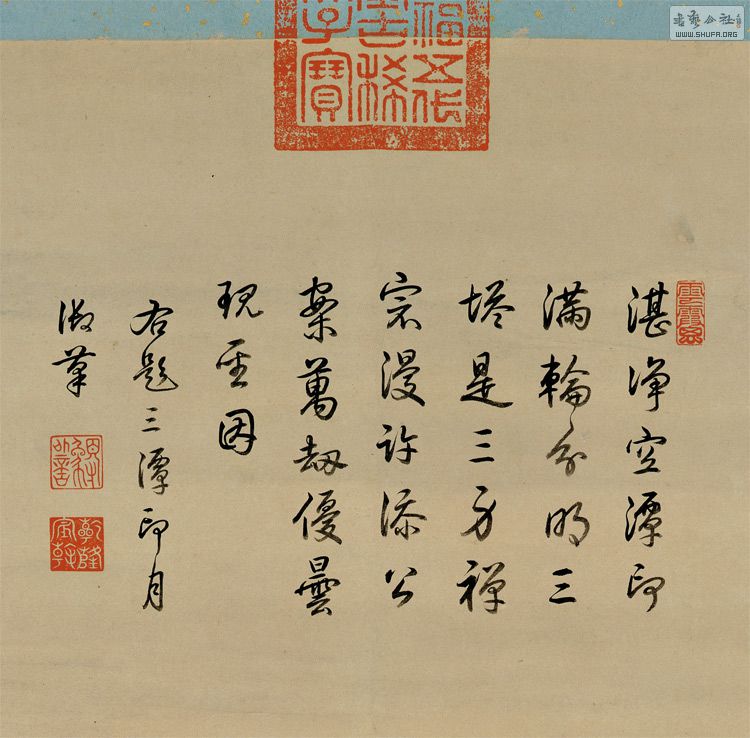 書藝公社
WWW.SHUFA.ORG
湛淨空潭印
滿輪分明三
塔是三身禪
宗漫許添公
案萬劫優曇
現聖因
右題三潭印月
御筆
乾隆
宸翰